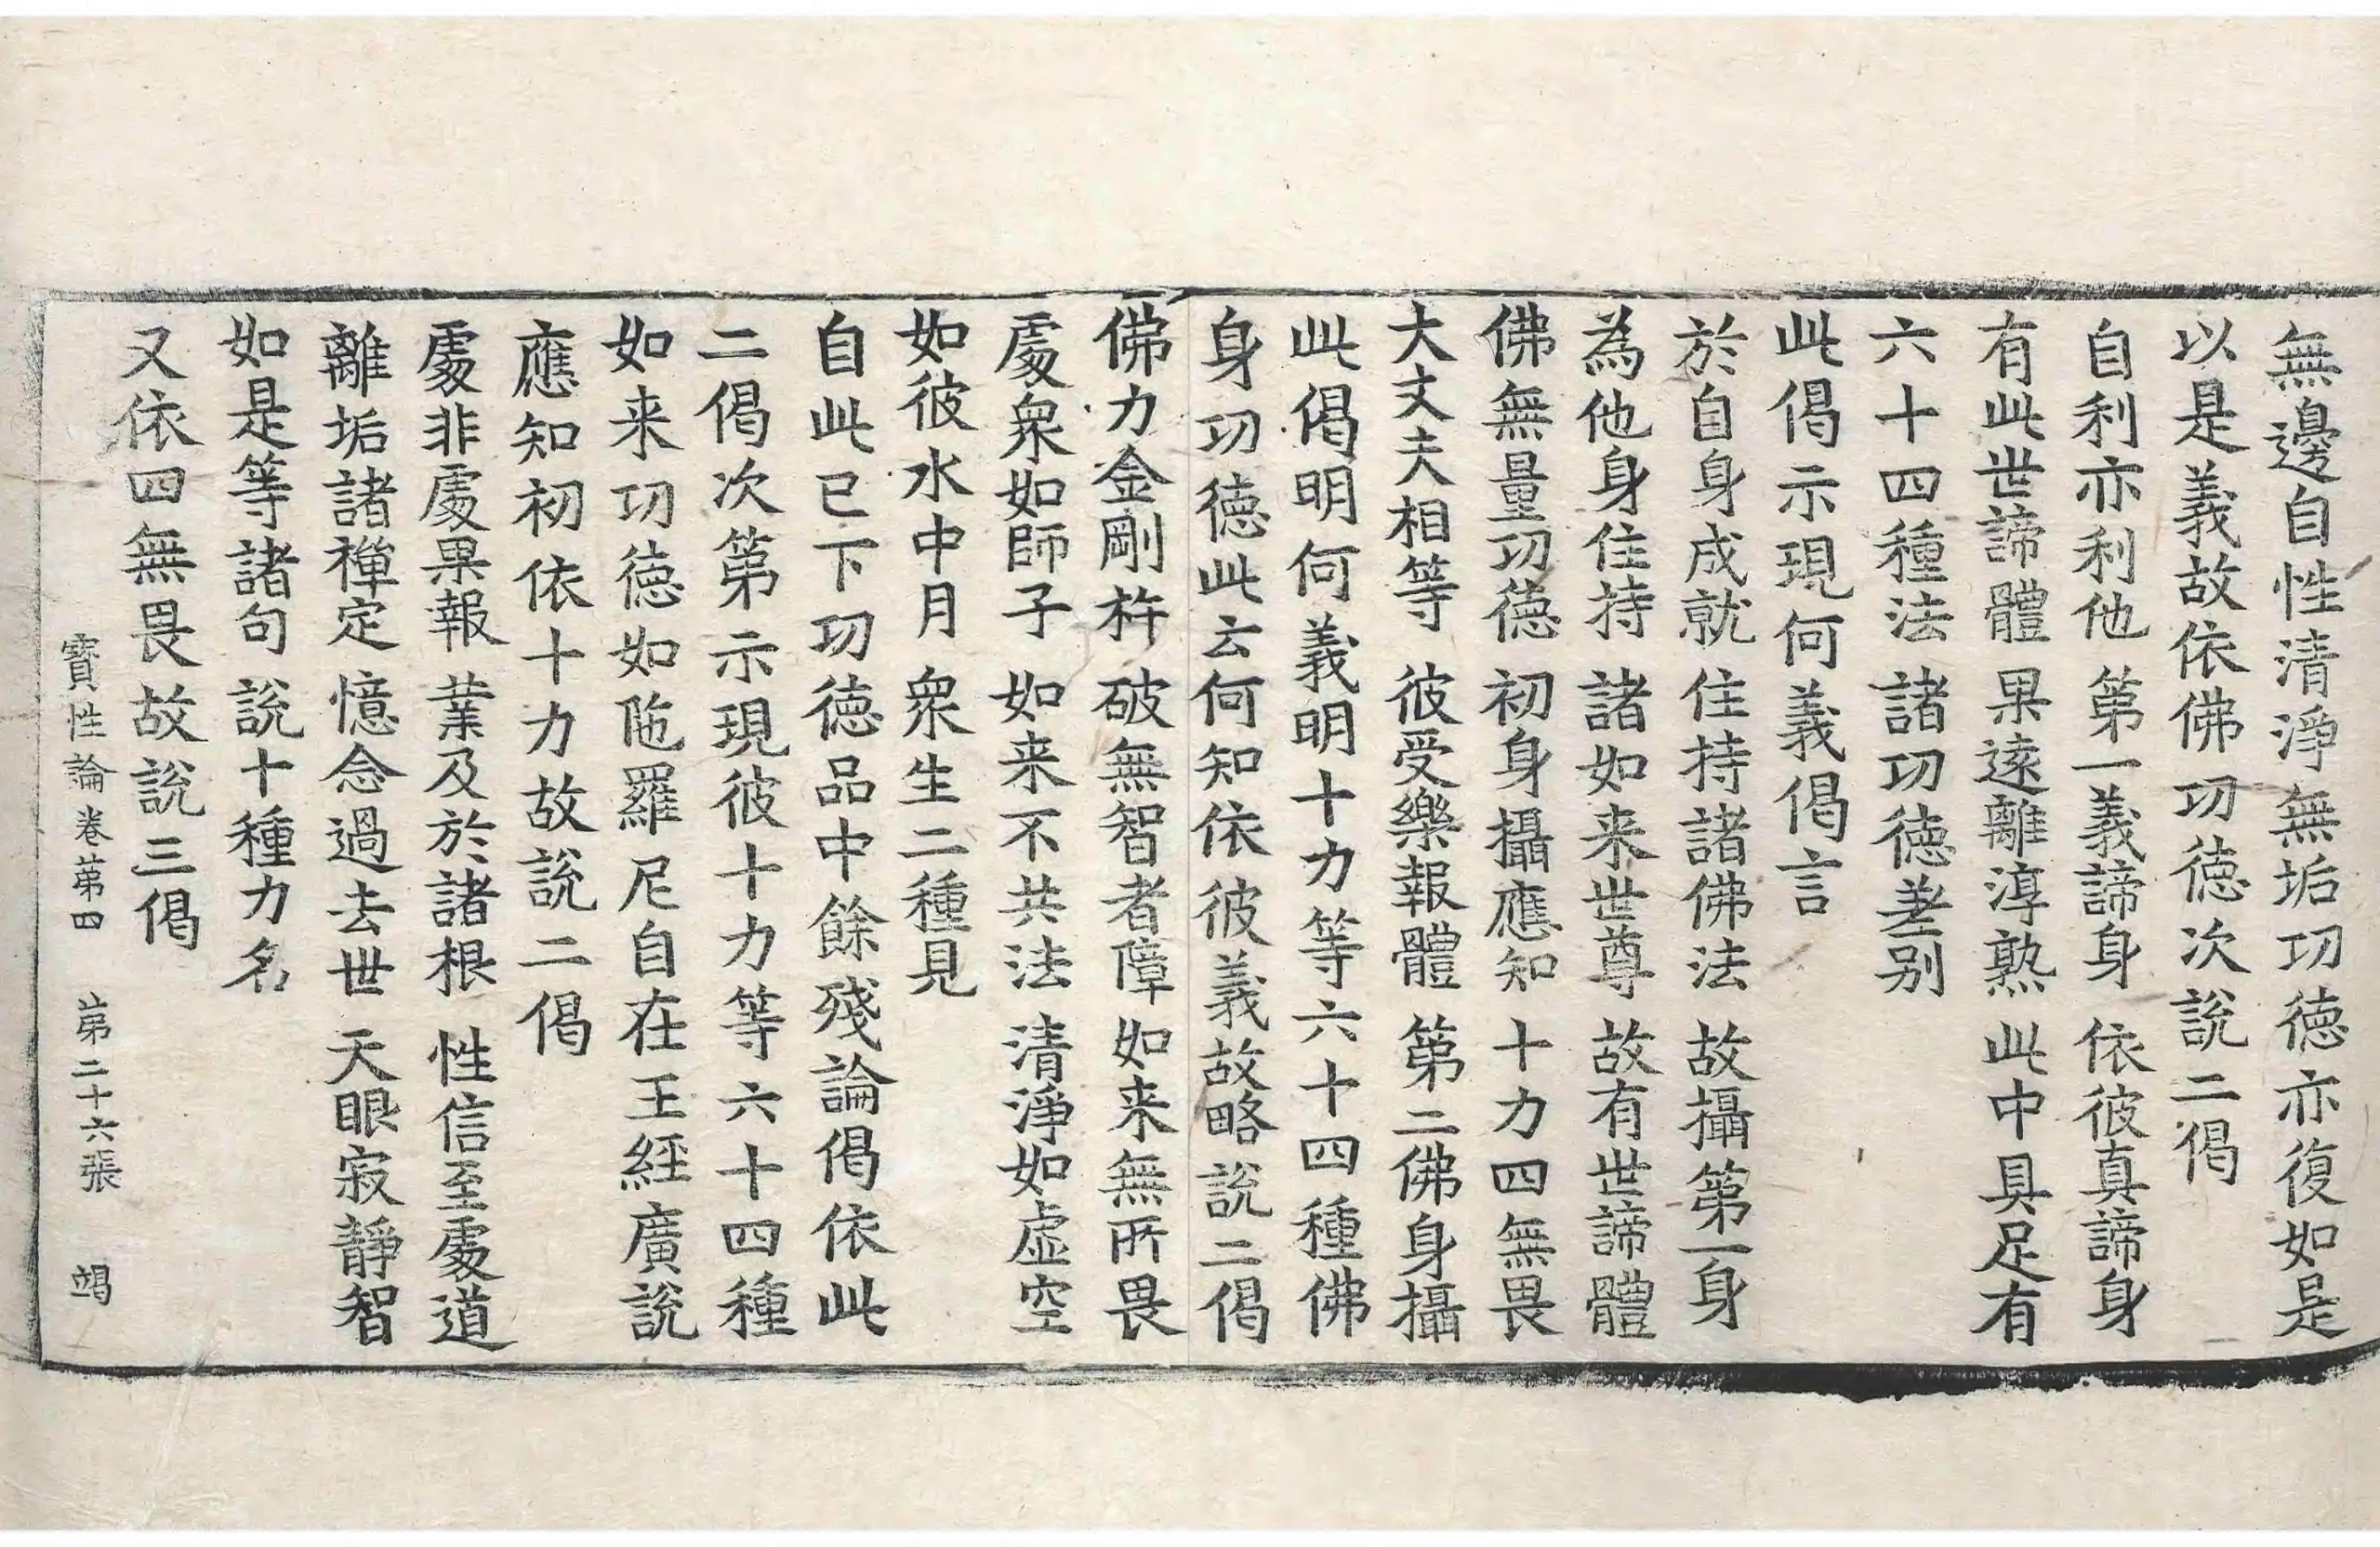 無邊自性清淨無垢功德亦復如是
以是義故依佛功徳次說二偈
自利亦利他 第一義諦身 依彼真諦身
有此世諦體 果遠離淳熟 此中具足有
六十四種法 諸功徳差别
此偈示現何義偈言
於自身成就 住持諸佛法 故攝第一身
為他身住持 諸如来世尊 故有世諦體
佛無量功徳 初身攝應知 十力四無畏
大丈夫相等 彼受樂報體 第二佛身攝
此偈明何義明十力等六十四種佛
身功徳此云何知依彼義故略說二偈
佛力金剛杵 破無智者障 如来無所畏
處衆如師子 如来不共法 清淨如虛空
如彼水中月 衆生二種見
自此已下功徳品中餘殘論偈依此
二偈次第示現彼十力等六十四種
如来功徳如陁羅尼自在王經廣說
應知初依十力故說二偈
處非處果報 業及於諸根 性信至處道
離垢諸禪定 憶念過去世 天眼寂靜智
如是等諸句 說十種力名
又依四無畏故說三偈
寶性論卷苐四 苐二十六張 竭